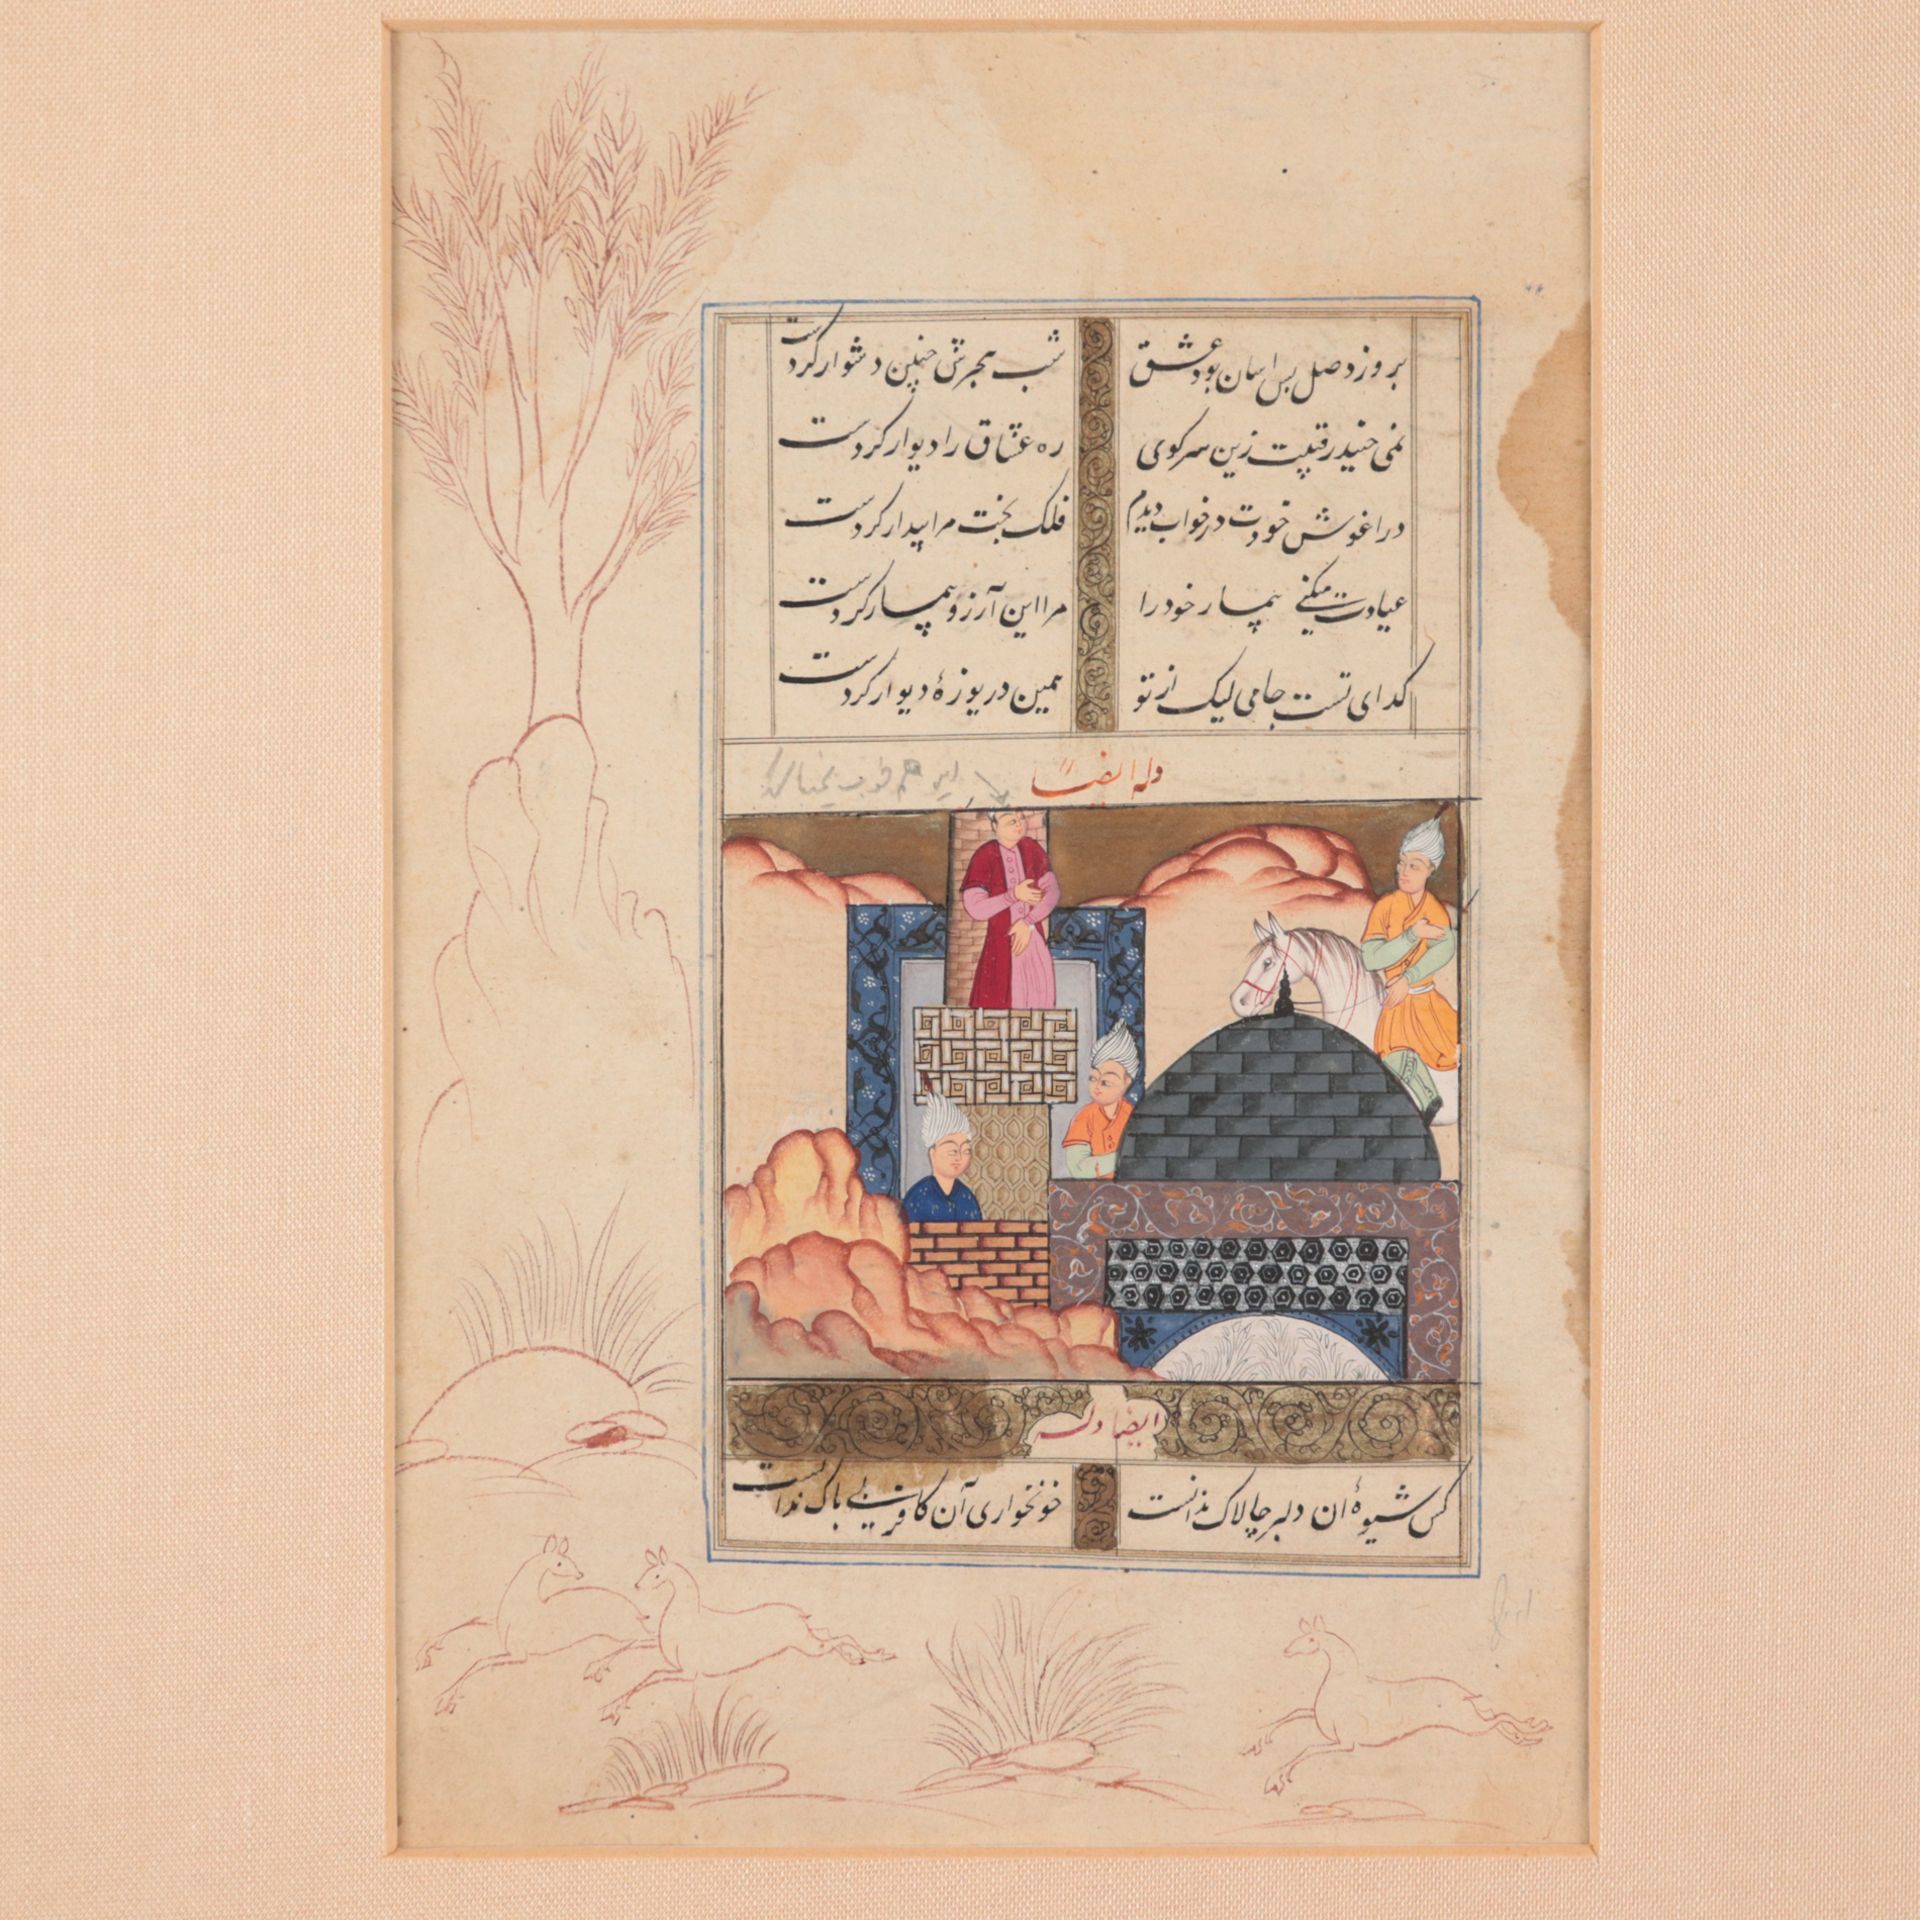 بروز وصل بس اسان بود عشق شب هجرش چنین دشوار کردست
نمی جنبد رقیبت زین سر کوی ره عشاق را دیوار کردست
در اغوش خودت در خواب دیدم فلک بخت مرا بیدار کردست
عیادت میکنی بیمار خود را مرا این آرزو بیمار کردست
کدای تست جامی لیک از تو همین دریوزهٔ دیوار کردست
وله ایضا
ایضا وله
کس شیوهٔ ان دلبر چالاک ندانست خونخواری آن کافر بی باک ندانست